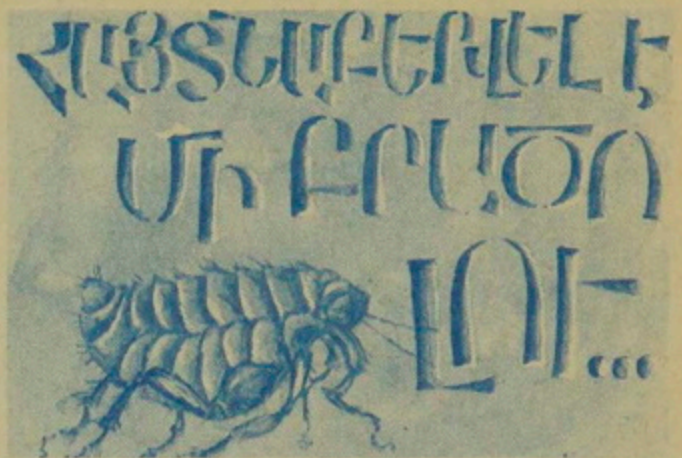 ՀԱՅՏՆԱԲԵՐՎԵԼ Է
ՄԻ ԲՐԱԾՈ
ԼՈՒ...